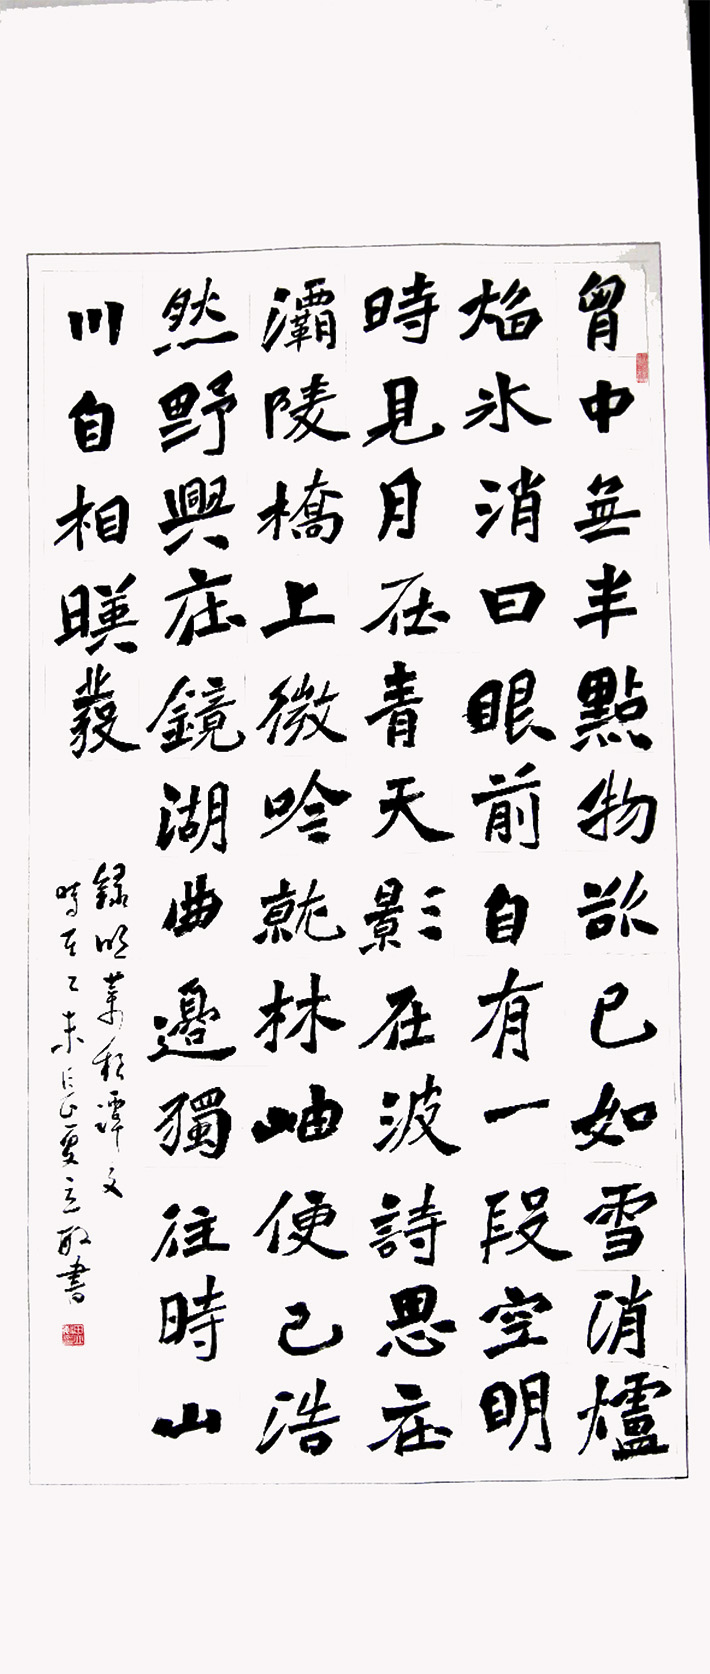 胷中無半點物欲已如雪消爐
焰冰消日眼前自有一段空明
時見月在青天影在波詩思在
灞陵橋上微吟就林岫便已浩
然野興在鏡湖曲邊獨往時山
川自相暎發
錄明菜根譚文
時在乙未長夏立敏書